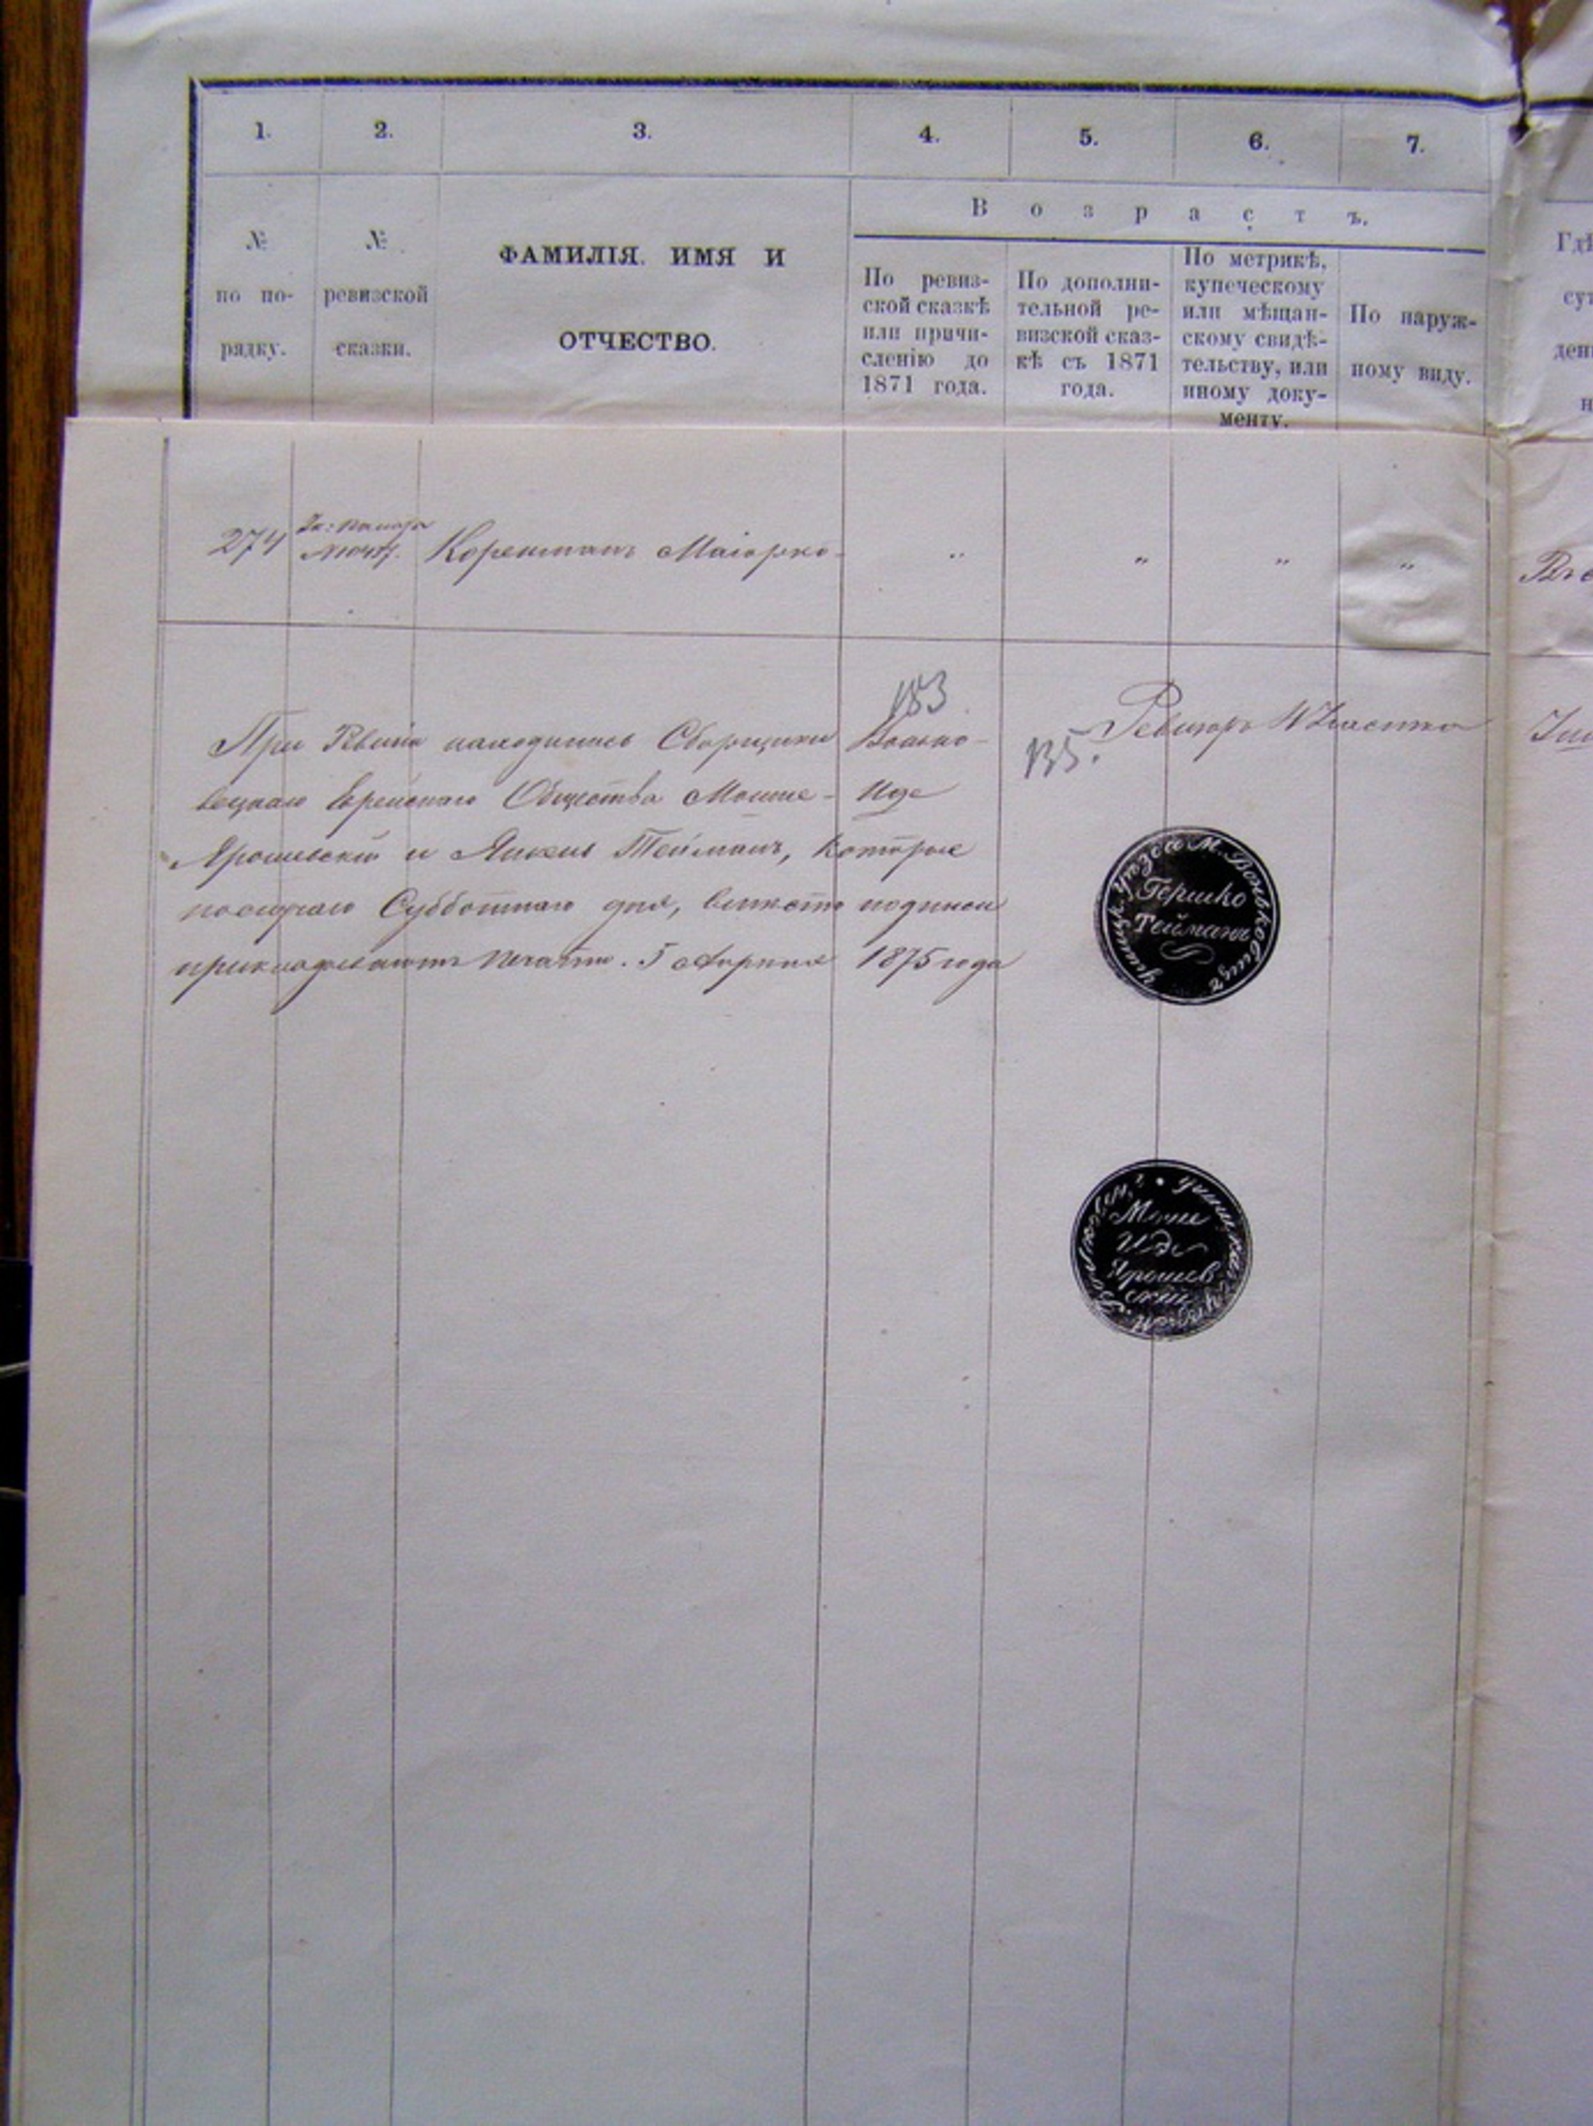 1. 2. 3. 4. 5. 6. 7.
В о з р а с т ъ.
№
по по-
рядку.
№
ревизской
сказки.
ФАМИЛІЯ. ИМЯ И
ОТЧЕСТВО.
По ревиз-
ской сказкѣ
или причи-
сленію до
1871 года.
По дополни-
тельной ре-
визской сказ-
кѣ съ 1871
года.
По метрикѣ,
купеческому
или мѣщан-
скому свидѣ-
тельству, или
иному доку-
менту.
По наруж-
ному виду.
Гдѣ
ден
н
274 Корешманъ Маіорко - „ „ „ „
183
При Ревизіи находились Сборщики Волько-
135. Ревизоръ
вецкаго Еврейскаго Общества Мошке - Иде
Ярошевскій и Янкель Тейманъ, которые
Субботнаго дня, вмѣсто подписи
прикладываютъ печати. 5 Апрѣля 1875 года
Ушицк. Уѣзда М. Воньковицъ
Гершко
Тейманъ
Мошке
Иде
Ярошев
скій